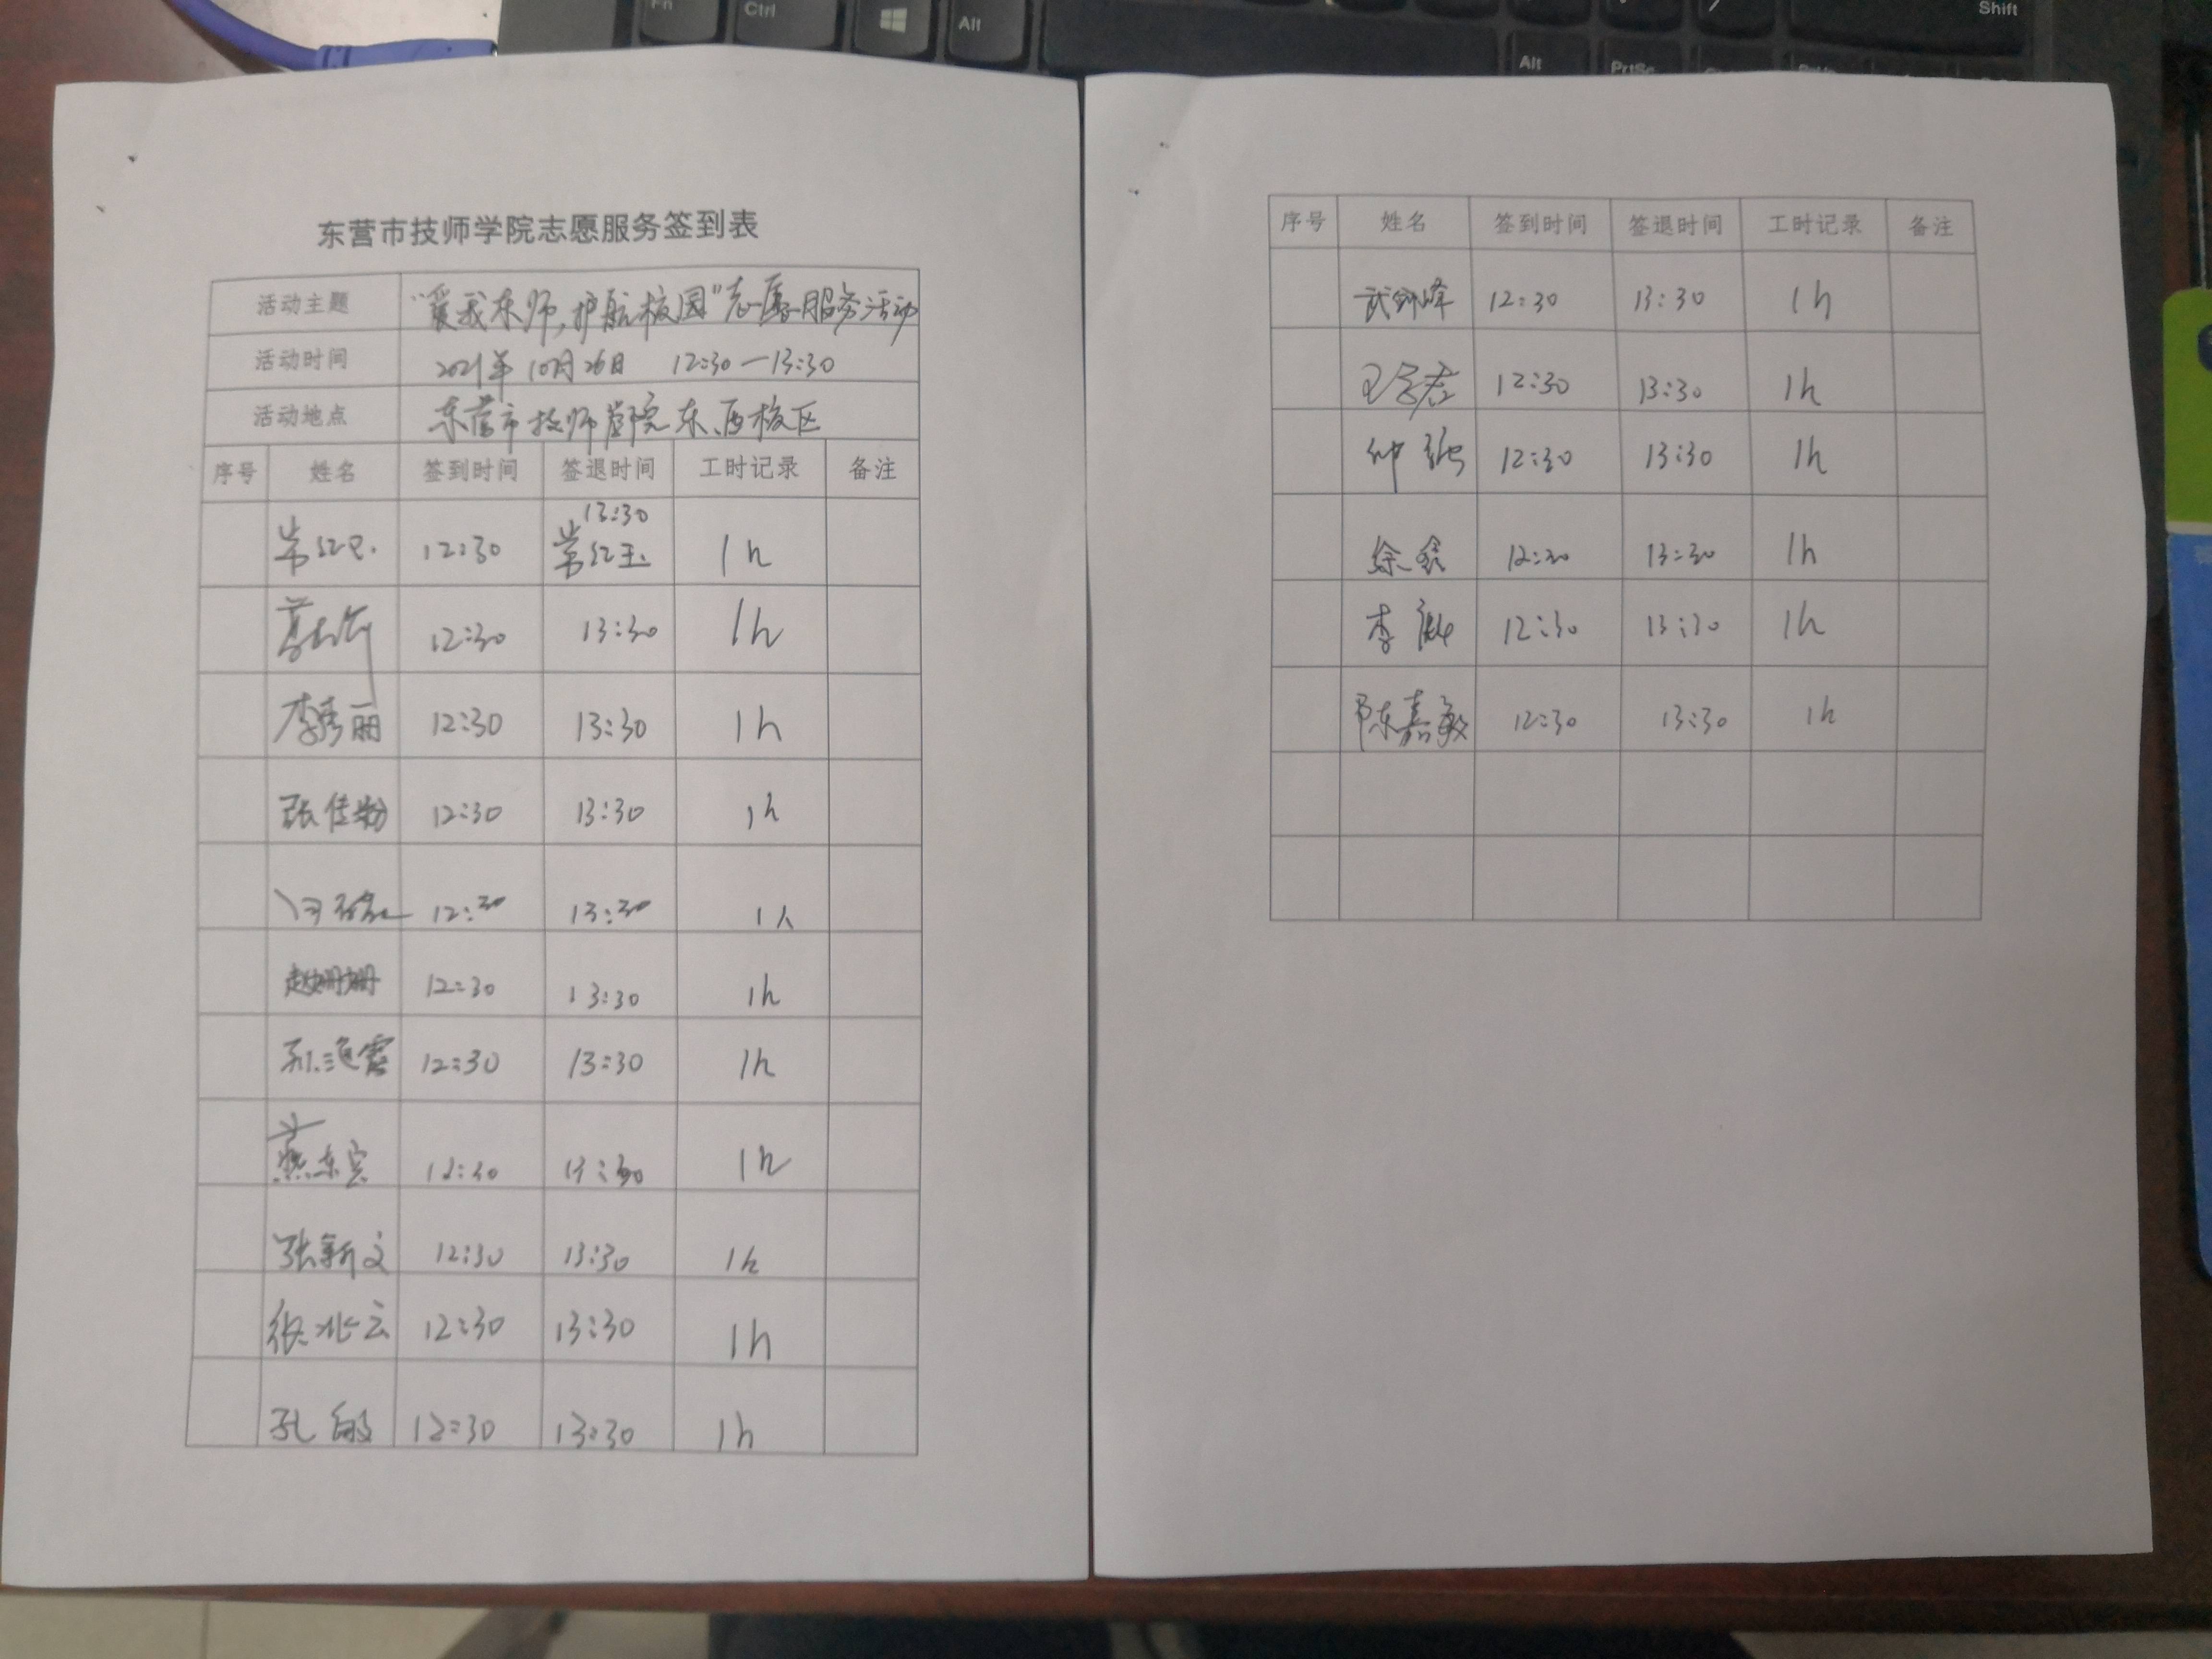 Fn Ctrl Alt Shift
Alt PrtSc
东营市技师学院志愿服务签到表
活动主题 “爱我东师,护航校园”志愿服务活动
活动时间 2021年10月26日 12:30—13:30
活动地点 东营市技师学院东、西校区
序号 姓名 签到时间 签退时间 工时记录 备注
13:30
常红玉 12:30 常红玉 1h
12:30 13:30 1h
李秀丽 12:30 13:30 1h
张佳 12:30 13:30 1h
12:30 13:30 1h
赵姗姗 12:30 13:30 1h
孙 12:30 13:30 1h
燕东宾 12:30 13:30 1h
张新文 12:30 13:30 1h
张兆云 12:30 13:30 1h
孔敏 12:30 13:30 1h
序号 姓名 签到时间 签退时间 工时记录 备注
武剑峰 12:30 13:30 1h
12:30 13:30 1h
12:30 13:30 1h
徐鑫 12:30 13:30 1h
李 12:30 13:30 1h
陈嘉敏 12:30 13:30 1h